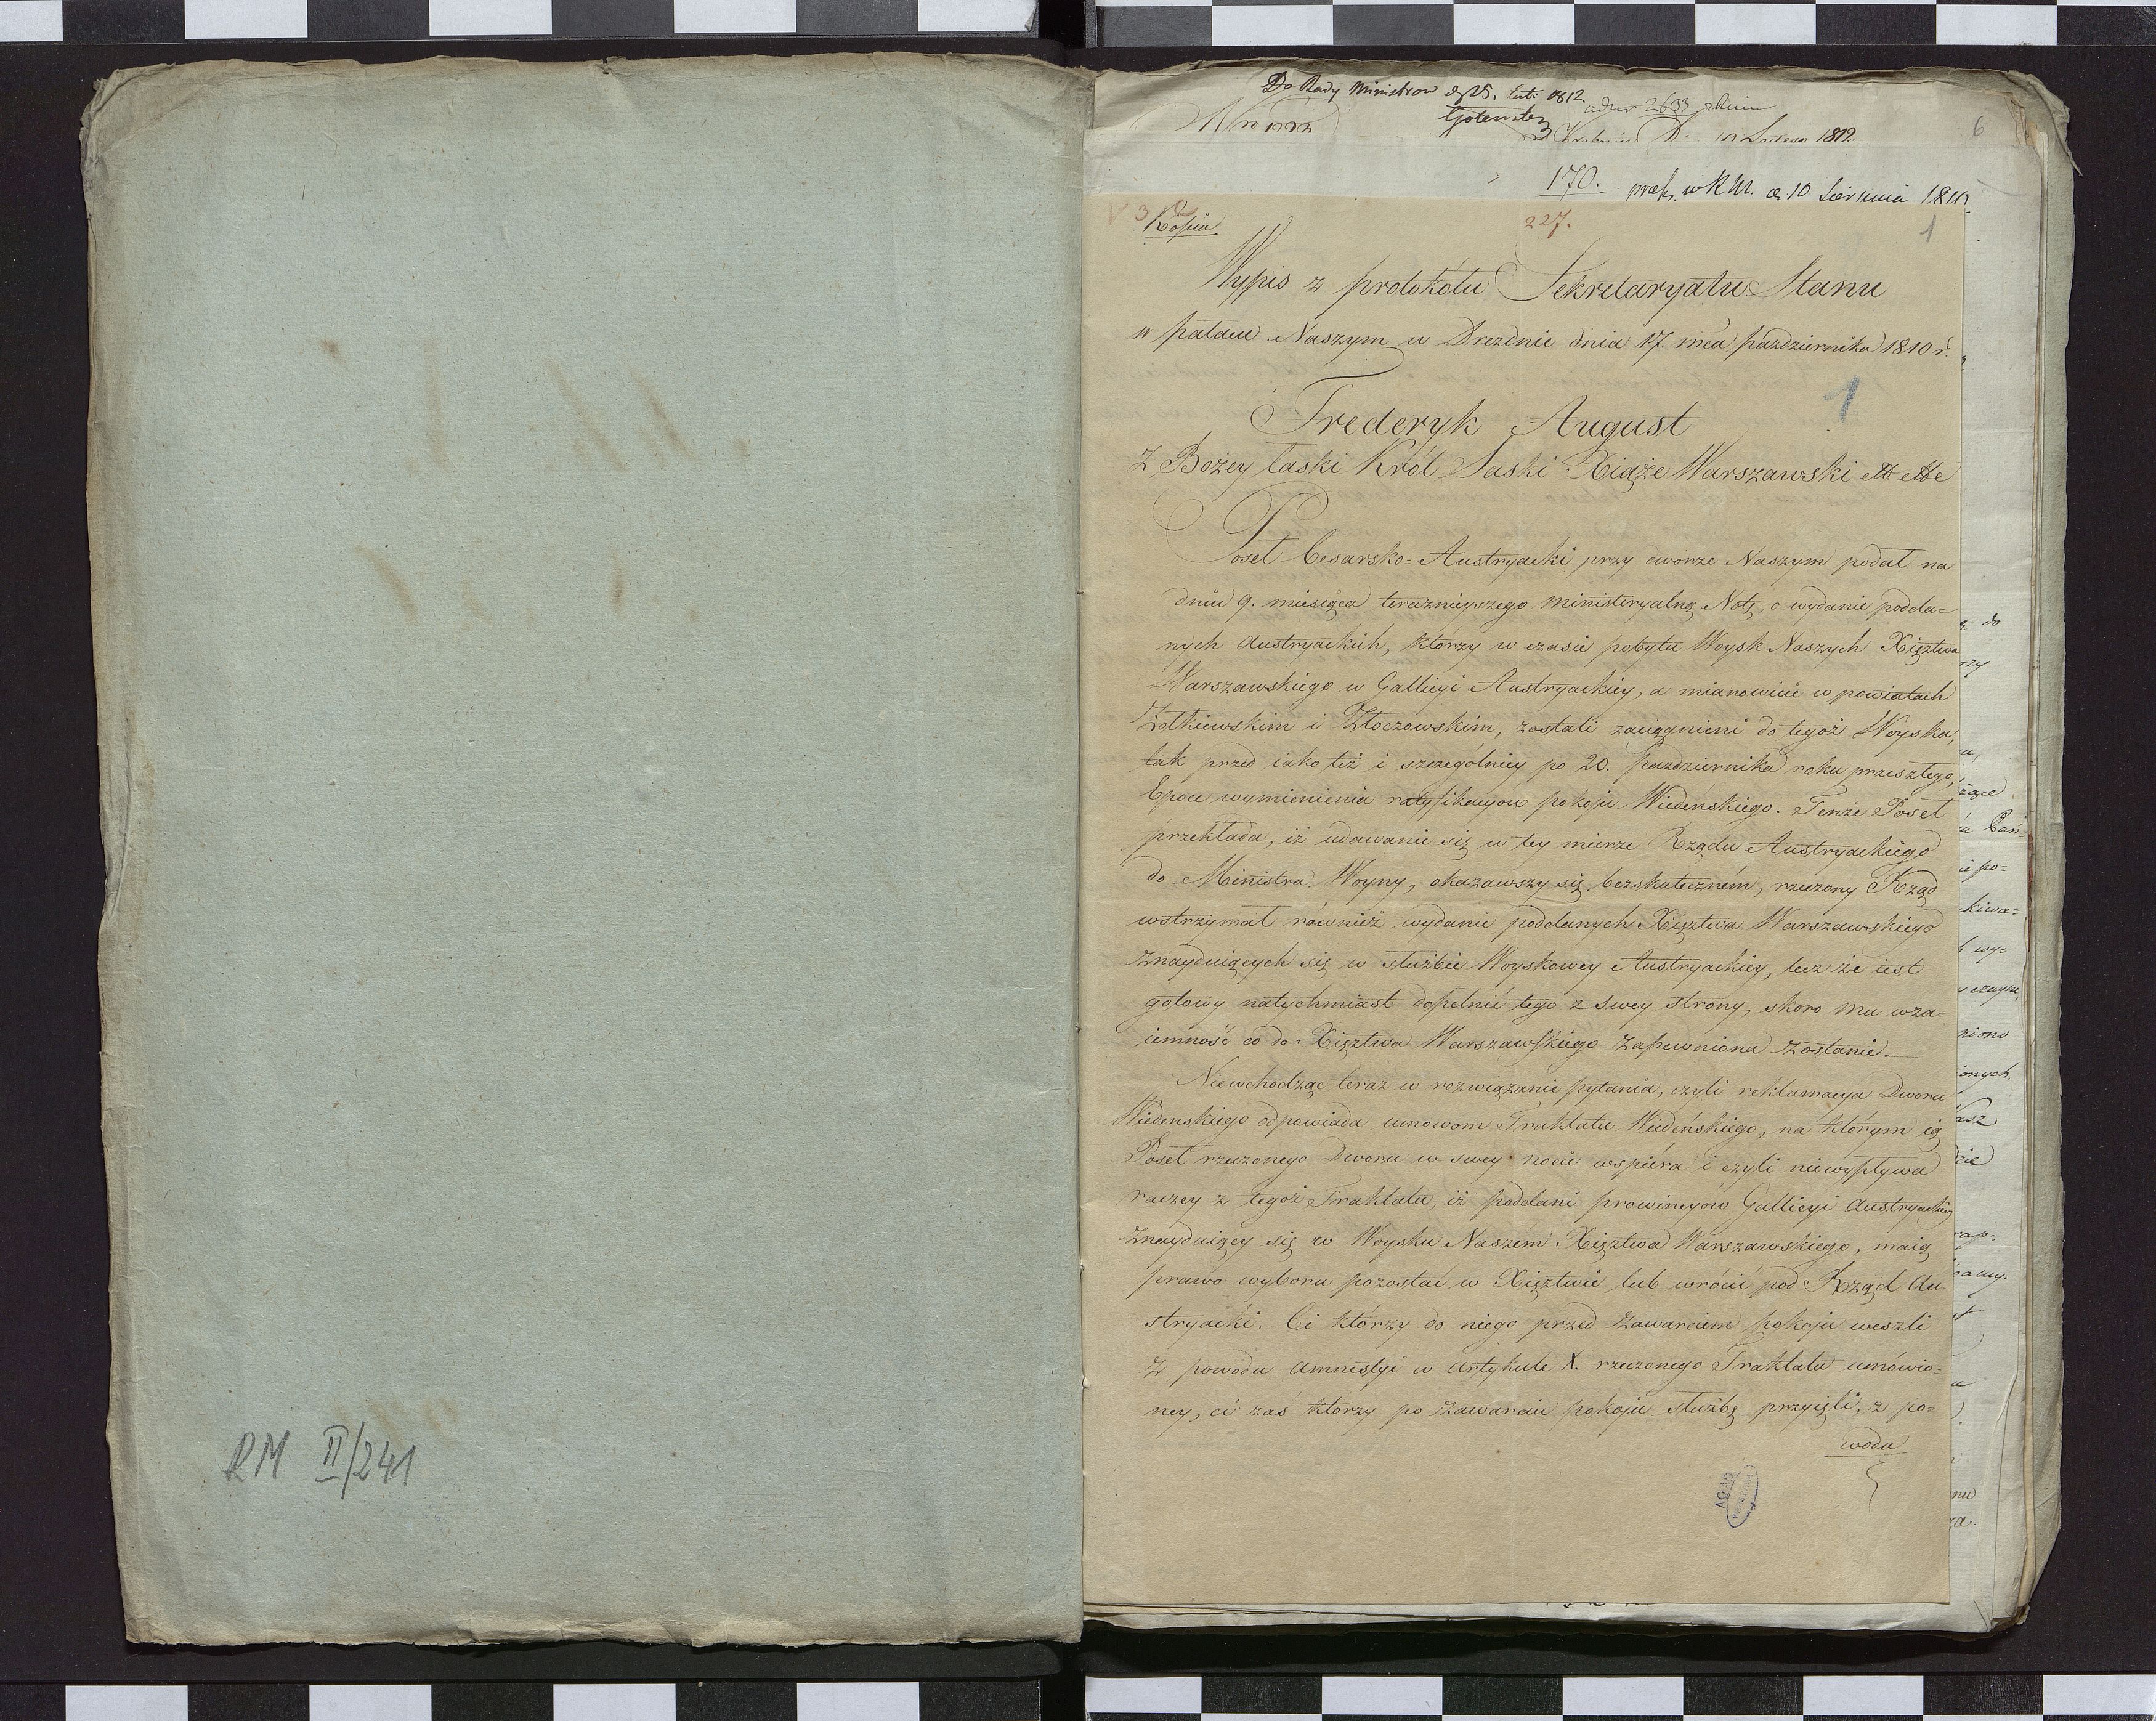 RM II/241
Do Rady Ministrow d 25. lut: 1812.
6
Lutego 1812.
170. w R M. d. 10 Sierpnia 1810
Kopia
227.
1
Wypis z protokółu Sekretaryatu Stanu
w pałacu Naszym w Dreźnie dnia 17. mca października 1810 r.
1
Frederyk August
Z Bożey łaski Król Saski Xiąże Warszawski
Poseł Cesarsko-Austryacki przy dworze Naszym podał na
dniu 9. miesiąca teraźnieyszego ministeryalną Notę o wydanie podda=
nych Austryackich, którzy w czasie pobytu Woysk Naszych Xięztwa
Warszawskiego w Gallicyi Austryackiey, a mianowicie w powiatach
Żółkiewskim i Złoczowskim, zostali zaciągnieni do tegoż Woyska,
tak przed iako też i szczególniey po 20. października roku przeszłego,
Epoce wymienienia ratyfikacyów pokoju Wiedeńskiego. Tenże Poseł
przekłada, iż udawanie się w tey mierze Rządu Austryackiego
do Ministra Woyny, okazawszy się bezskuteczném, rzeczony Rząd
wstrzymał również wydanie poddanych Xięztwa Warszawskiego
znayduiących się w służbie Woyskowey Austryackiey, lecz że iest
gotowy natychmiast dopełnić tego z swey strony, skoro mu wza=
iemność co do Xięztwa Warszawskiego zapewniona zostanie.
Niewchodząc teraz w rozwiązanie pytania, czyli reklamacya Dworu
Wiedenskiego odpowiada umowom Traktatu Wiedeńskiego, na którym ią
Poseł rzeczonego Dworu w swey nocie wspiera i czyli niewypływa
raczey z tegoż Traktatu, iż poddani prowincyów Gallicyi Austryackiey
znayduiący się w Woysku Naszém Xięztwa Warszawskiego, maią
prawo wyboru pozostać w Xięztwie lub wrócić pod Rząd Au
stryacki. Ci którzy do niego przed zawarciem pokoju weszli
z powodu Amnestyi w Artykule X. rzeczonego Traktatu umówio=
ney, ci zaś którzy po zawarciu pokoju służbę przyięli, z po=
wodu
AGAD